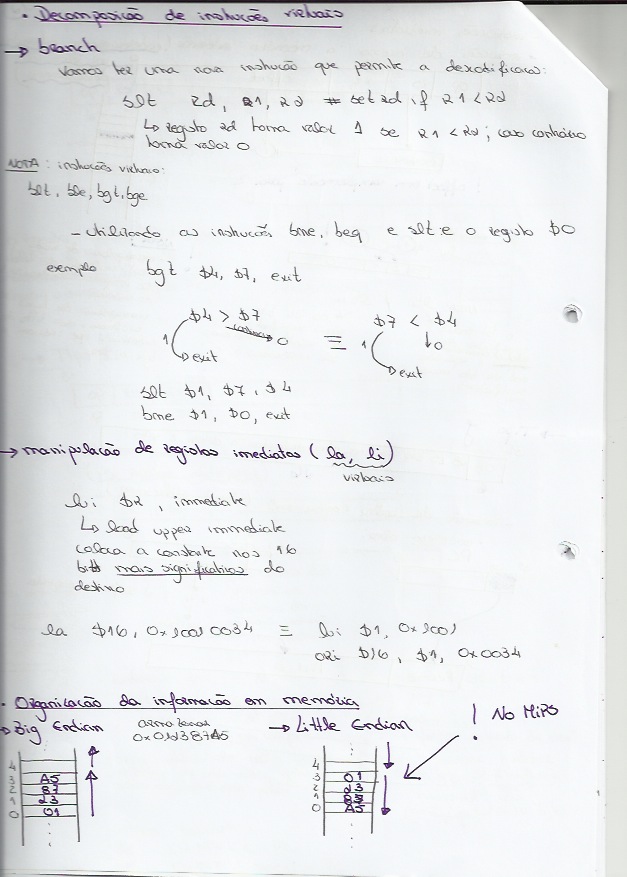 • Decomposição de instruções virtuais
→ branch
Vamos ter uma nova instrução que permite a descodificação:
slt Rd, R1, R2 # set Rd if R1 < R2
↳ registo Rd toma valor 1 se R1 < R2; caso contrário
toma valor 0
NOTA: instruções virtuais:
blt, ble, bgt, bge
- Utilizando as instruções bne, beq e slt e o registo $0
exemplo bgt $4, $7, exit
$4 > $7 ≡ $7 < $4
1 0 1 0
exit exit
slt $1, $7, $4
bne $1, $0, exit
→ manipulação de registos imediatos (la, li)
virtuais
lui $R, immediate
↳ load upper immediate
coloca a constante nos 16
bits mais significativos do
destino
la $16, 0x10010034 ≡ lui $1, 0x1001
ori $16, $1, 0x0034
• Organização da informação em memória
→ Big Endian armazenar → Little Endian ! No MIPS
0x012387A5
4 4
3 A5 3 01
2 87 2 23
1 23 1 87
0 01 0 A5